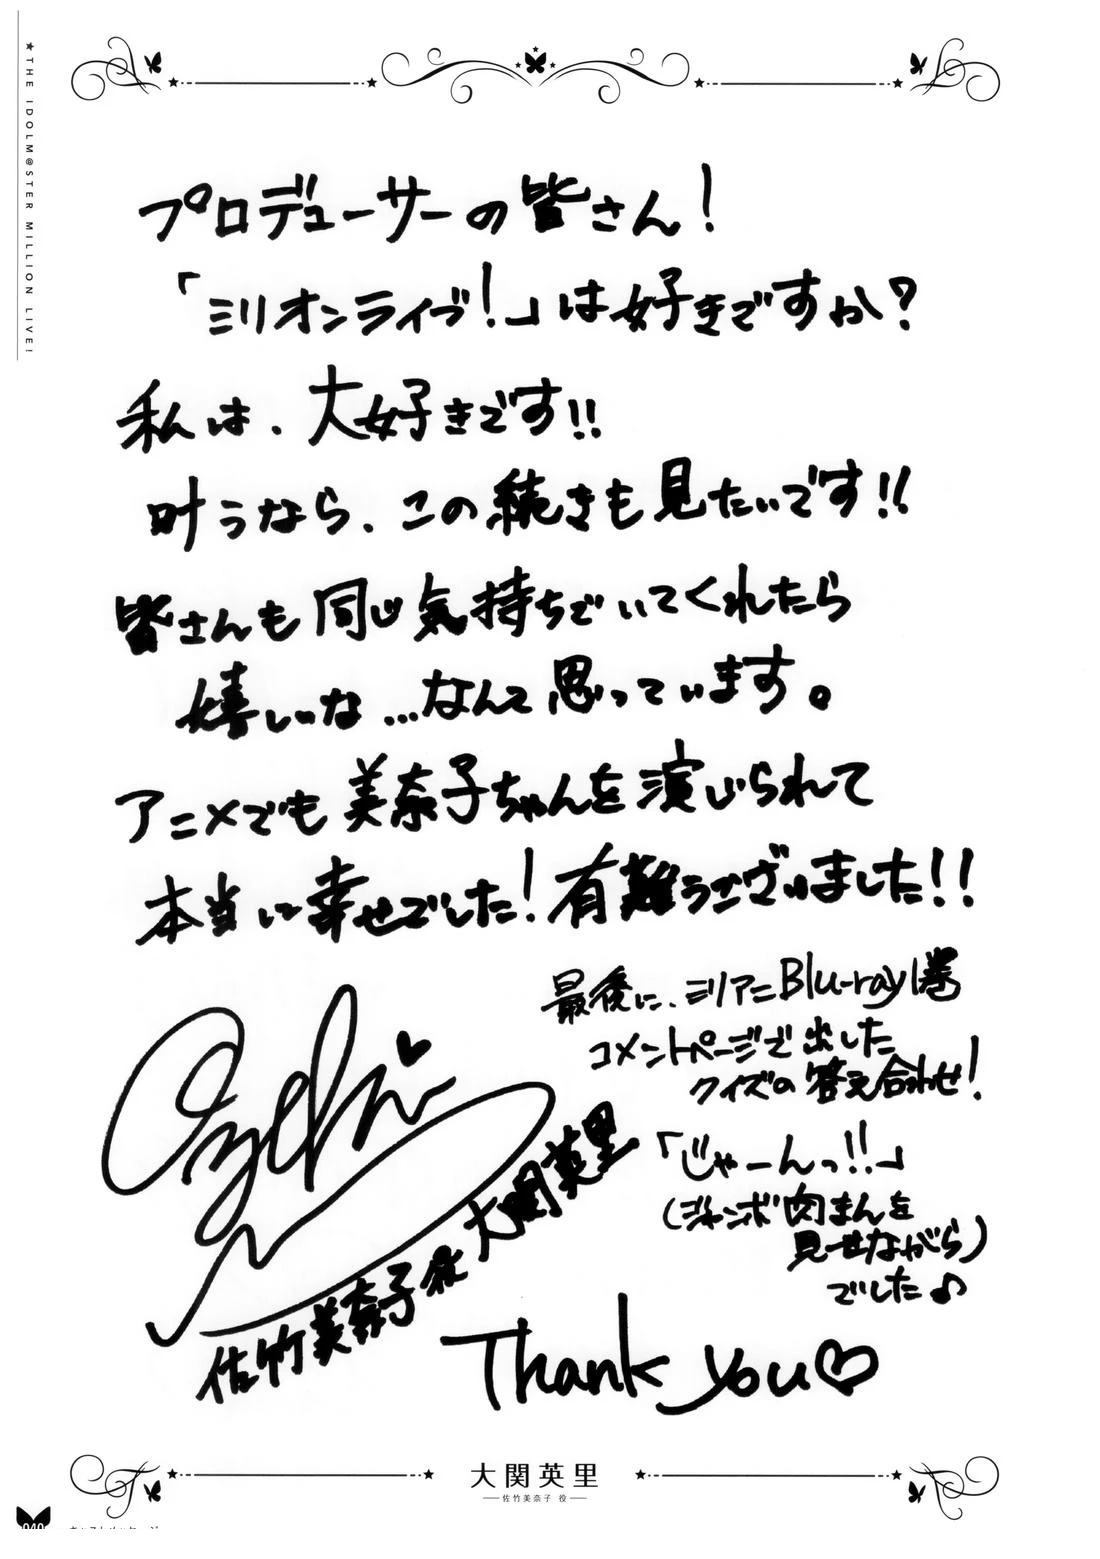 ★THE IDOLM@STER MILLION LIVE!
プロデューサーの皆さん！
「ミリオンライブ！」は好きですか？
私は、大好きです!!
叶うなら、この続きも見たいです!!
皆さんも同じ気持ちでいてくれたら
嬉しいな…なんて思っています。
アニメでも美奈子ちゃんを演じられて
本当に幸せでした！有難うございました!!
最後に、ミリアニBlu-ray1巻
コメントページで出した
クイズの答え合わせ！
「じゃーんっ!!」
(ジャンボ肉まんを
見せながら)
でした♪
佐竹美奈子役 大関英里
Thank you♡
大関英里
佐竹美奈子 役
040